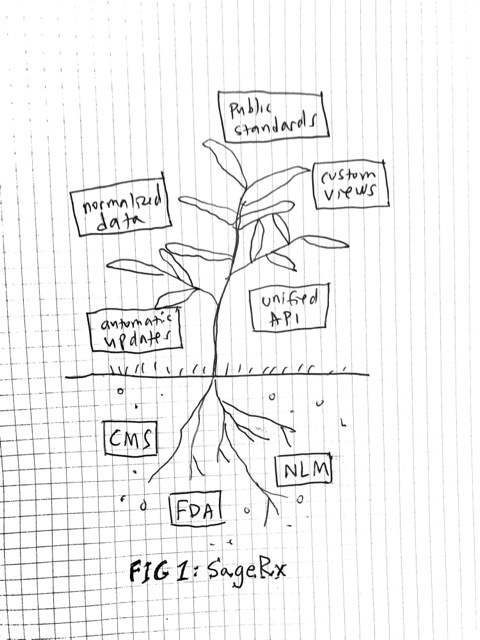 Public
standards
custom
views
normalized
data
unified
API
automatic
updates
CMS
NLM
FDA
FIG 1: SageRx